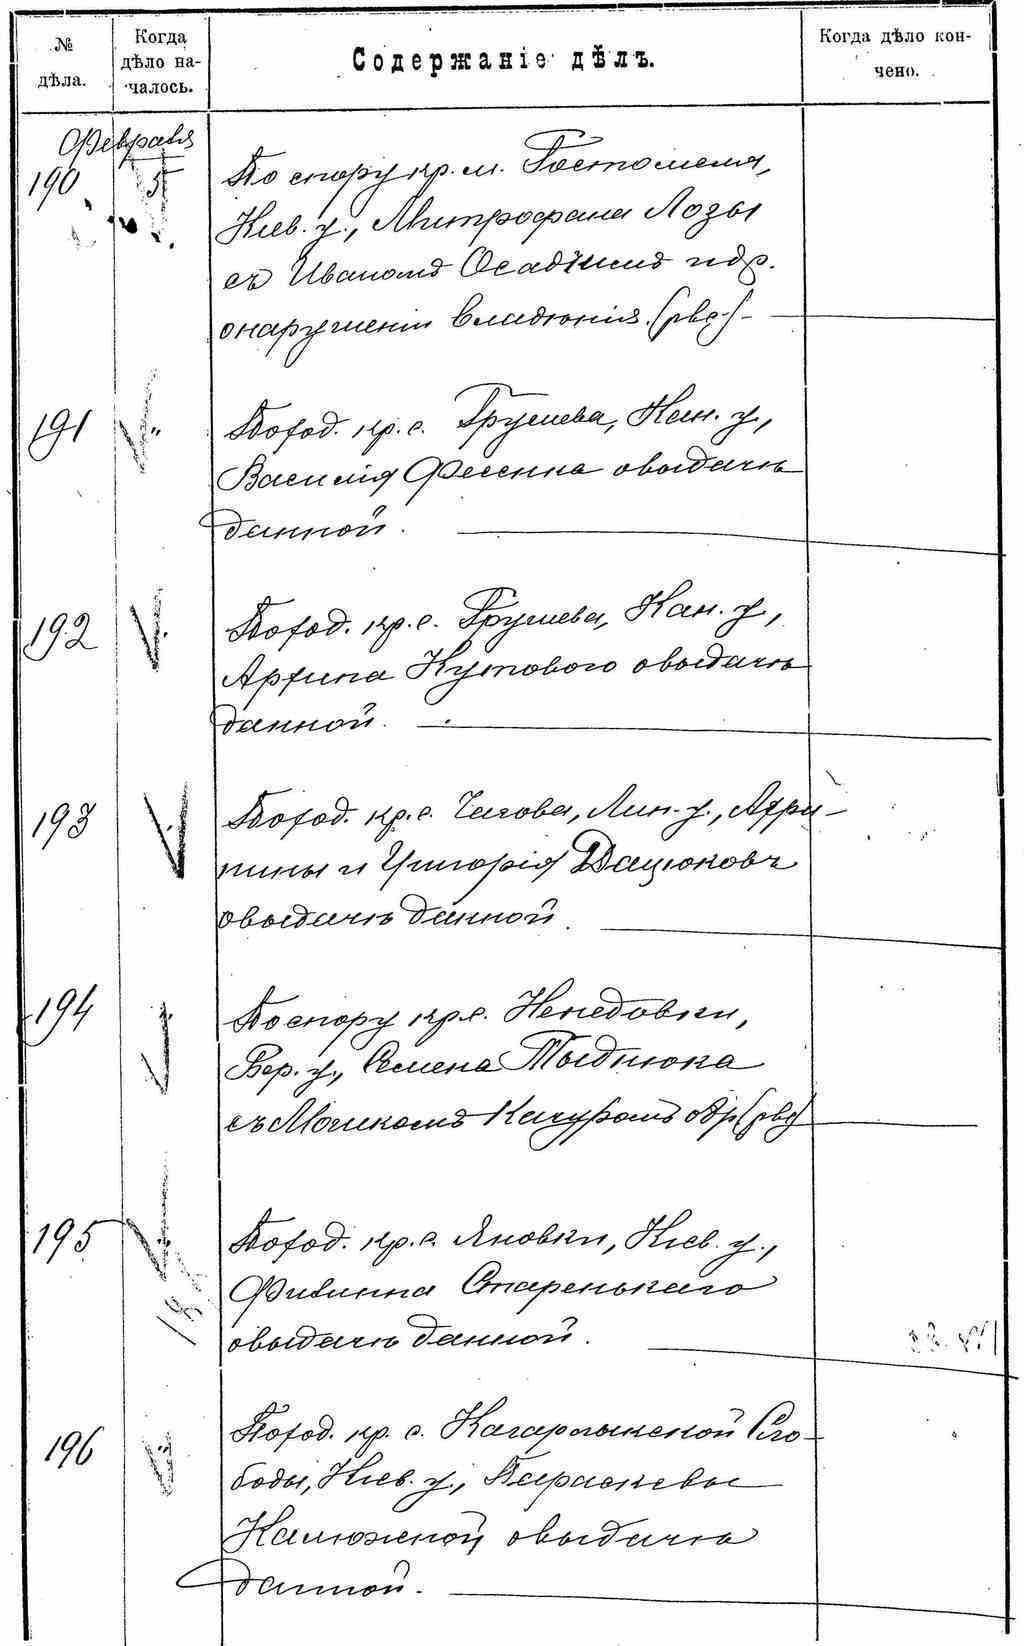 № дѣла.
Когда дѣло на-
чалось.
Содержаніе дѣлъ.
Когда дѣло кон-
чено.
Февраля
190 5
По спору кр. м. Гостомеля,
Кіев. у., Митрофана Лозы
съ Иваномъ Осадчимъ и др.
о нарушеніи владѣнія.
191 "
По ход. кр. с. Грушева, Кан. у.,
Василія Фесенка о выдачѣ
данной.
192 "
По ход. кр. с. Грушева, Кан. у.,
Архипа Кутового о выдачѣ
данной.
193 "
По ход. кр. с. Чагова, Лип. у., Агри-
пины и Григорія Дацюковъ
о выдачѣ данной.
194 "
По спору кр. с. Ненедовки,
Бер. у., Семена Тыднюка
съ Мошкомъ Качуромъ
195 "
По ход. кр. с. Яновки, Кіев. у.,
Филиппа Старенькаго
о выдачѣ данной.
196 "
По ход. кр. с. Кагарлыкской Сло-
боды, Кіев. у., Параскевы
Калюжной о выдачѣ
данной.